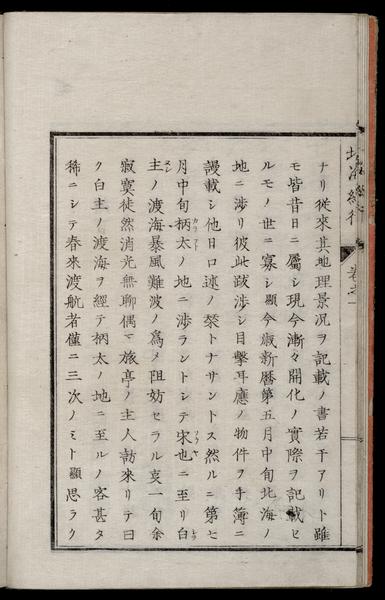 北海紀行 卷之一
ナリ從來其地理景況ヲ記載ノ書若干アリト雖
モ皆昔日ニ屬シ現今漸々開化ノ實際ヲ記載セ
ルモノ世ニ寡シ顯今歳新曆第五月中旬北海ノ
地ニ渉リ彼此跋渉シ目擊耳應ノ物件ヲ手簿ニ
謾載シ他日口述ノ榮トナサントス然ルニ第七
月中旬柄太ノ地ニ渉ラントシテ宋也ニ至リ白
主ノ渡海暴風難波ノ爲メ阻妨セラル哀一旬余
寂寞徒然消光無聊偶マ旅亭ノ主人訪來リテ曰
ク白主ノ渡海ヲ經テ柄太ノ地ニ至ルノ客甚タ
稀ニシテ春來渡航者僅ニ三次ノミト顯思ラク